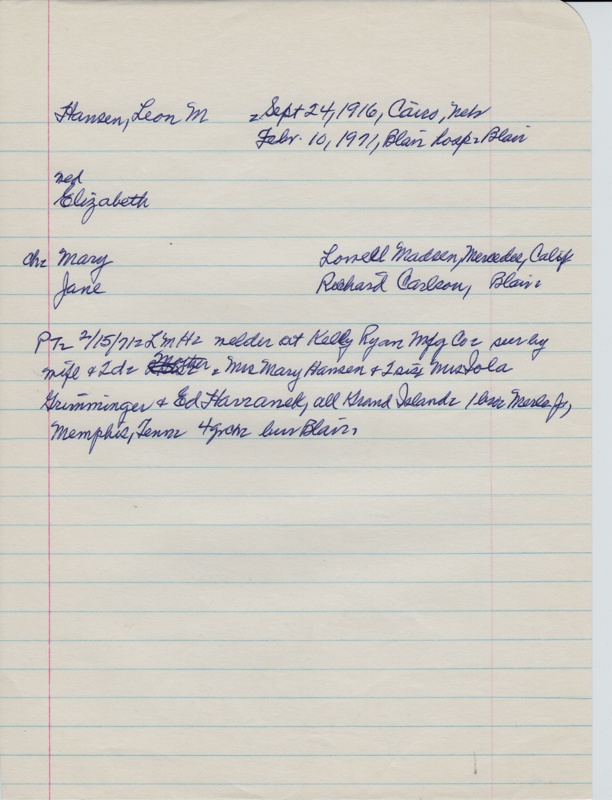 Hansen, Leon M = Sept 24, 1916, Cairo, Neb
Febr. 10, 1971, Blair hosp = Blair
med
Elizabeth
ch = Mary Lowell Madsen, Mercedes, Calif
Jane Richard Carlson, Blair =
PT = 2/15/71 = L M H = welder at Kelly Ryan Mfg Co = sur by
wife & 2d = Mother = Mrs Mary Hansen & 2 sis = Mrs Iola
Grimminger & Ed Havranek, all Grand Island = 1 bro = Merle Jr,
Memphis, Tenn = 4 grch = bur Blair =